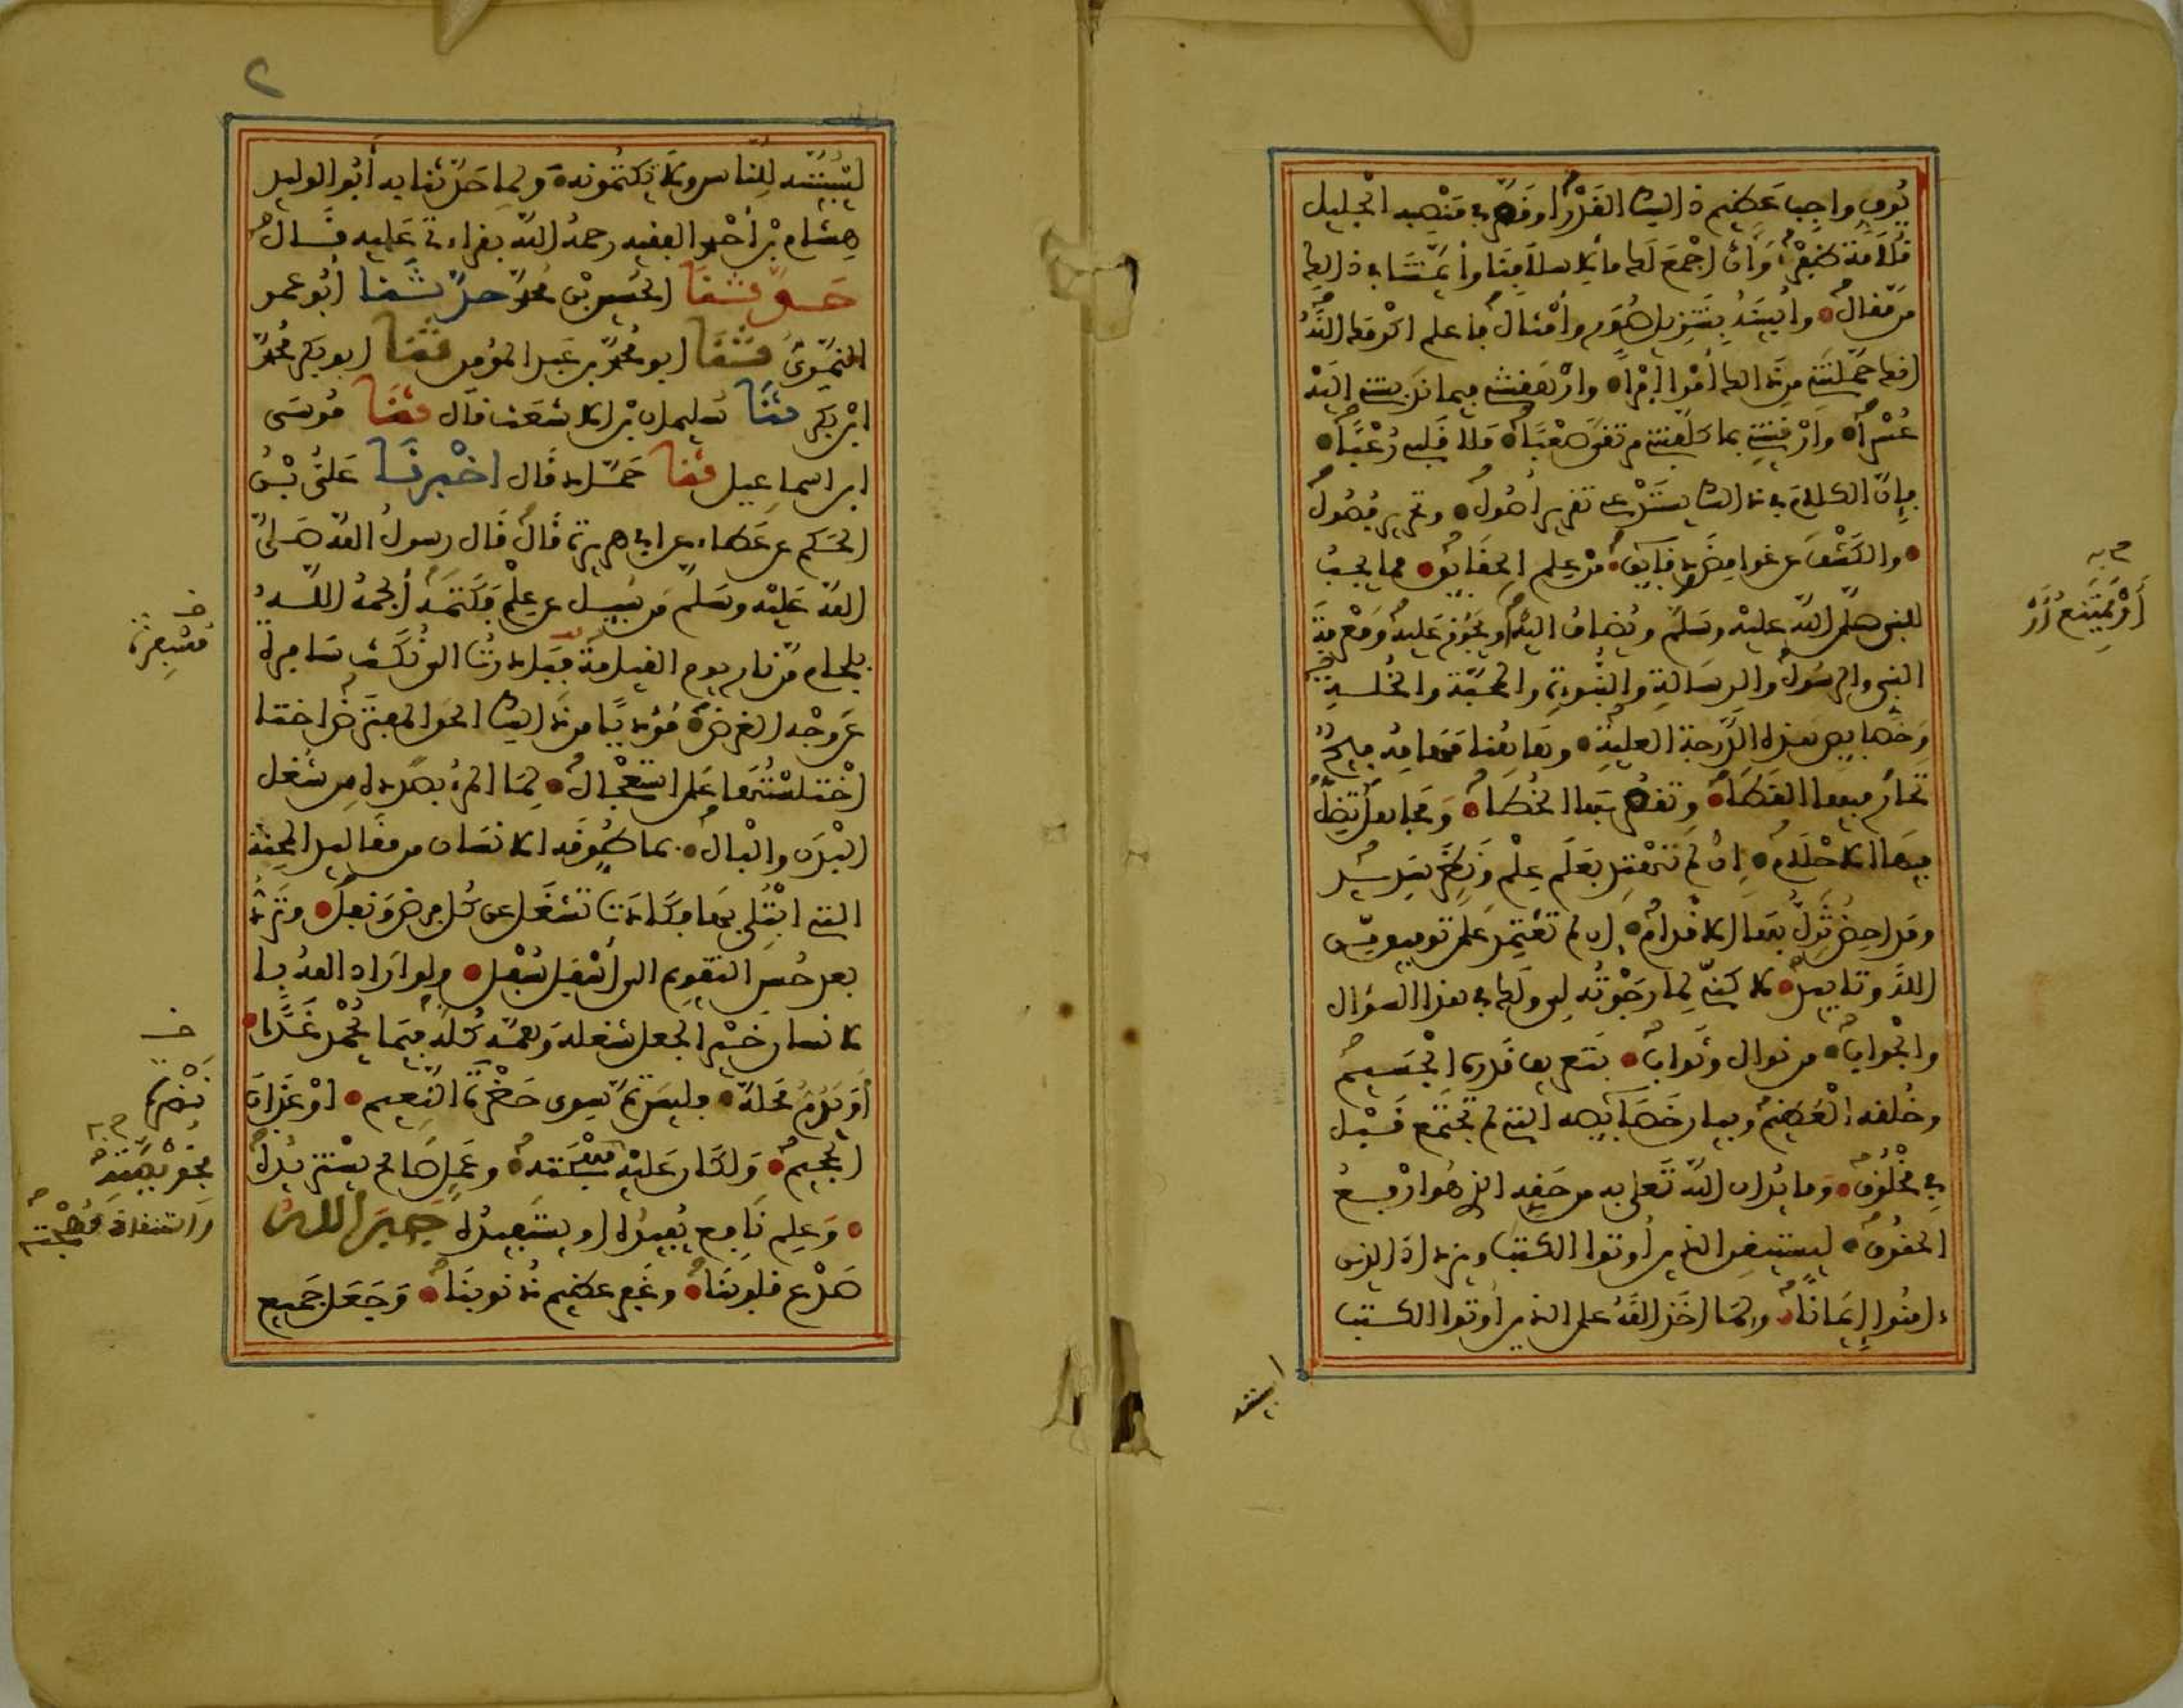 يوف واجب عظيم ذلك القدر أو قصر في منصبه الجليل
قلامة ظفر وأن اجمع لك ما لأسلافنا وأئمتنا في ذلك
من مقال وأبينه بتنزيل صور وأمثال فاعلم اكرمك الله
انك حملتني من ذلك أمرا إمرا وأرهقتني فيما ندبتني إليه
عسرا وأرقيتني بما كلفتني مرتقى صعبا ملأ قلبي رعبا
فإن الكلام في ذلك يستدعي تقرير أصول وتحرير فصول
والكشف عن غوامض ودقايق من علم الحقايق مما يجب
للنبي صلى الله عليه وسلم ويضاف اليه أو يجوز عليه ومعرفة
النبي والرسول والرسالة والنبوءة والمحبة والخلة
وخصايص هذه الدرجة العلية وهاهنا مهامه فيح
تحار فيها القطا وتقصر بها الخطا ومجاهل تضل
فيها الاحلام إن لم تهتد بعلم علم ونظر سديد
ومداحض تزل بها الاقدام إن لم تعتمد على توفيق من
الله وتاييد لاكني لما رجوته لي ولك في هذا السؤال
والجواب من نوال وثواب بتعريف قدره الجسيم
وخلقه العظيم وبيان خصايصه التي لم تجتمع قبل
في مخلوق وما يدان الله تعلى به من حقه الذي هو أرفع
الحقوق ليستيقن الذين أوتوا الكتب ويزداد الذين
ءامنوا إيمانا ولما اخذ الله على الذين أوتوا الكتب
أو يمتنع أو
لتبيننه للناس ولا تكتمونه ولما حدثنا به أبو الوليد
هشام بن أحمد الفقيه رحمه الله بقراءتي عليه قال
حدثنا الحسين بن محمد حدثنا أبو عمر
النمري ثنا ابو محمد بن عبد المؤمن ثنا ابو بكر محمد
ابن بكر ثنا سليمان بن الاشعث قال ثنا موسى
ابن اسماعيل ثنا حماد قال اخبرنا علي بن
الحكم عن عطاء عن ابي هريرة قال قال رسول الله صلى
الله عليه وسلم من سيل عن علم فكتمه ألجمه الله
بلجام من نار يوم القيامة فبادرت الى نكت سافرة
عن وجه الغرض مؤديا من ذلك الحق المفترض اختلا
اختلستها على استعجال لما المرء بصدده من شغل
البدن والبال بما طوقه الانسان من مقاليد المحنة
التي ابتلي بها فكادت تشغل عن كل فرض ونفل وترد
بعد حسن التقويم الى أسفل سفل ولو اراد الله با
لانسان خيرا لجعل شغله وهمه كله فيما يحمد غدا
أو يذم محله فليس ثم سوى حضرة النعيم او عذاب
الجحيم ولكان عليه بخويصته وعمل صالح يستزيده
وعلم نافع يفيده او يستفيده جبر الله
صدع قلوبنا وغفر عظيم ذنوبنا وجعل جميع
نضرة
بخويصته
واستنقاذ مهجته